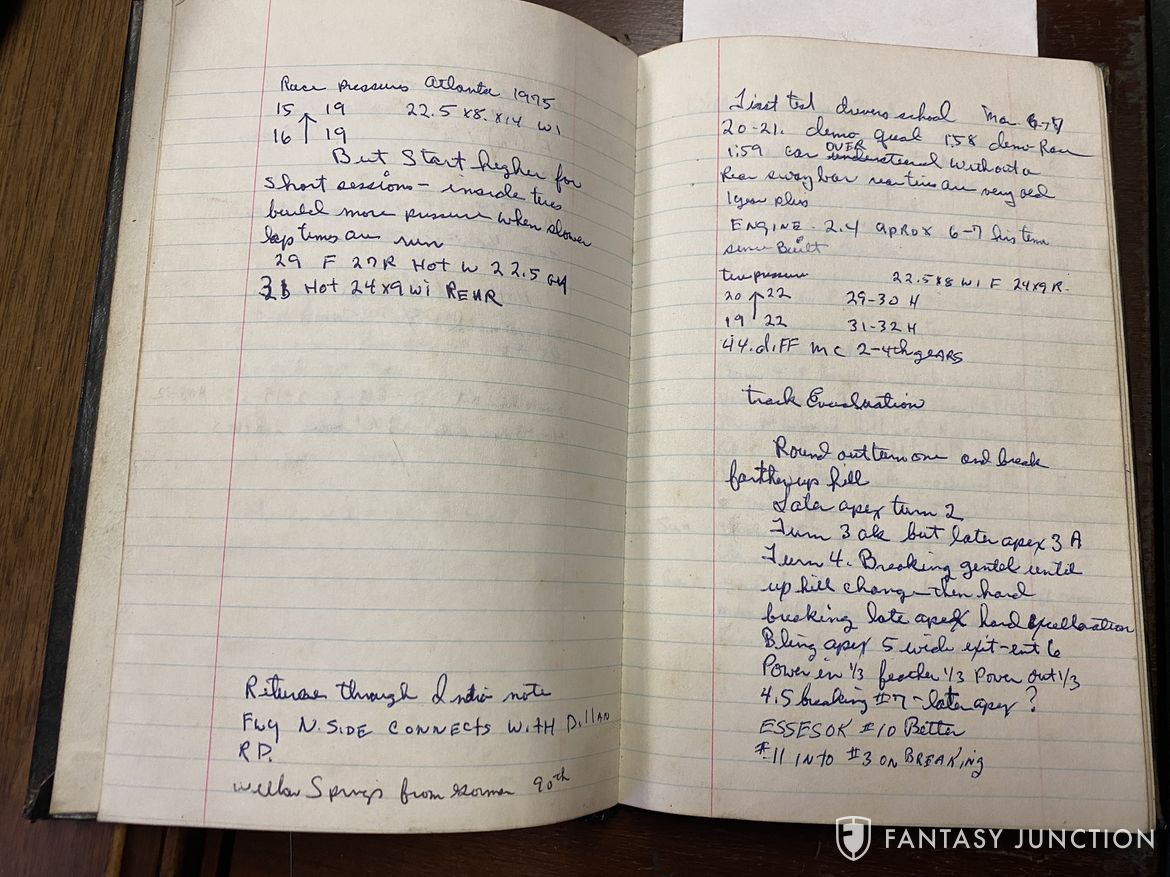 Race pressures Atlanta 1975
15 ↑ 19 22.5 x8. x14 WI
16 19
But Start higher for
short sessions - inside tires
build more pressure when slower
lap times are run
29 F 27R Hot W 22.5
Hot 24x9 WI REAR
Returns through note
Fwy N. SIDE CONNECTS WITH Dillan
RD.
Springs from Gorman 90th
First test drivers school Mar 6-7
20-21. demo qual 158 demo Race
1:59 car OVER steered without a
Rear sway bar rear tires are very old
1 year plus
ENGINE 2.4 aprox 6-7 hrs time
since Built
tire pressure 22.5x8 WI F 24x9 R.
20 ↑ 22 29-30 H
19 22 31-32 H
44. diff MC 2-4th GEARS
track Evaluation
Round out turn one and break
farther up hill
Later apex turn 2
Turn 3 ok but later apex 3 A
Turn 4. Breaking gentel until
up hill change then hard
breaking late apex hard
apex 5 wide exit-ent 6
Power in 1/3 feather 1/3 Power out 1/3
4.5 breaking #7 - later apex ?
ESSES OK #10 Better
#11 INTO #3 ON BREAKING
FANTASY JUNCTION